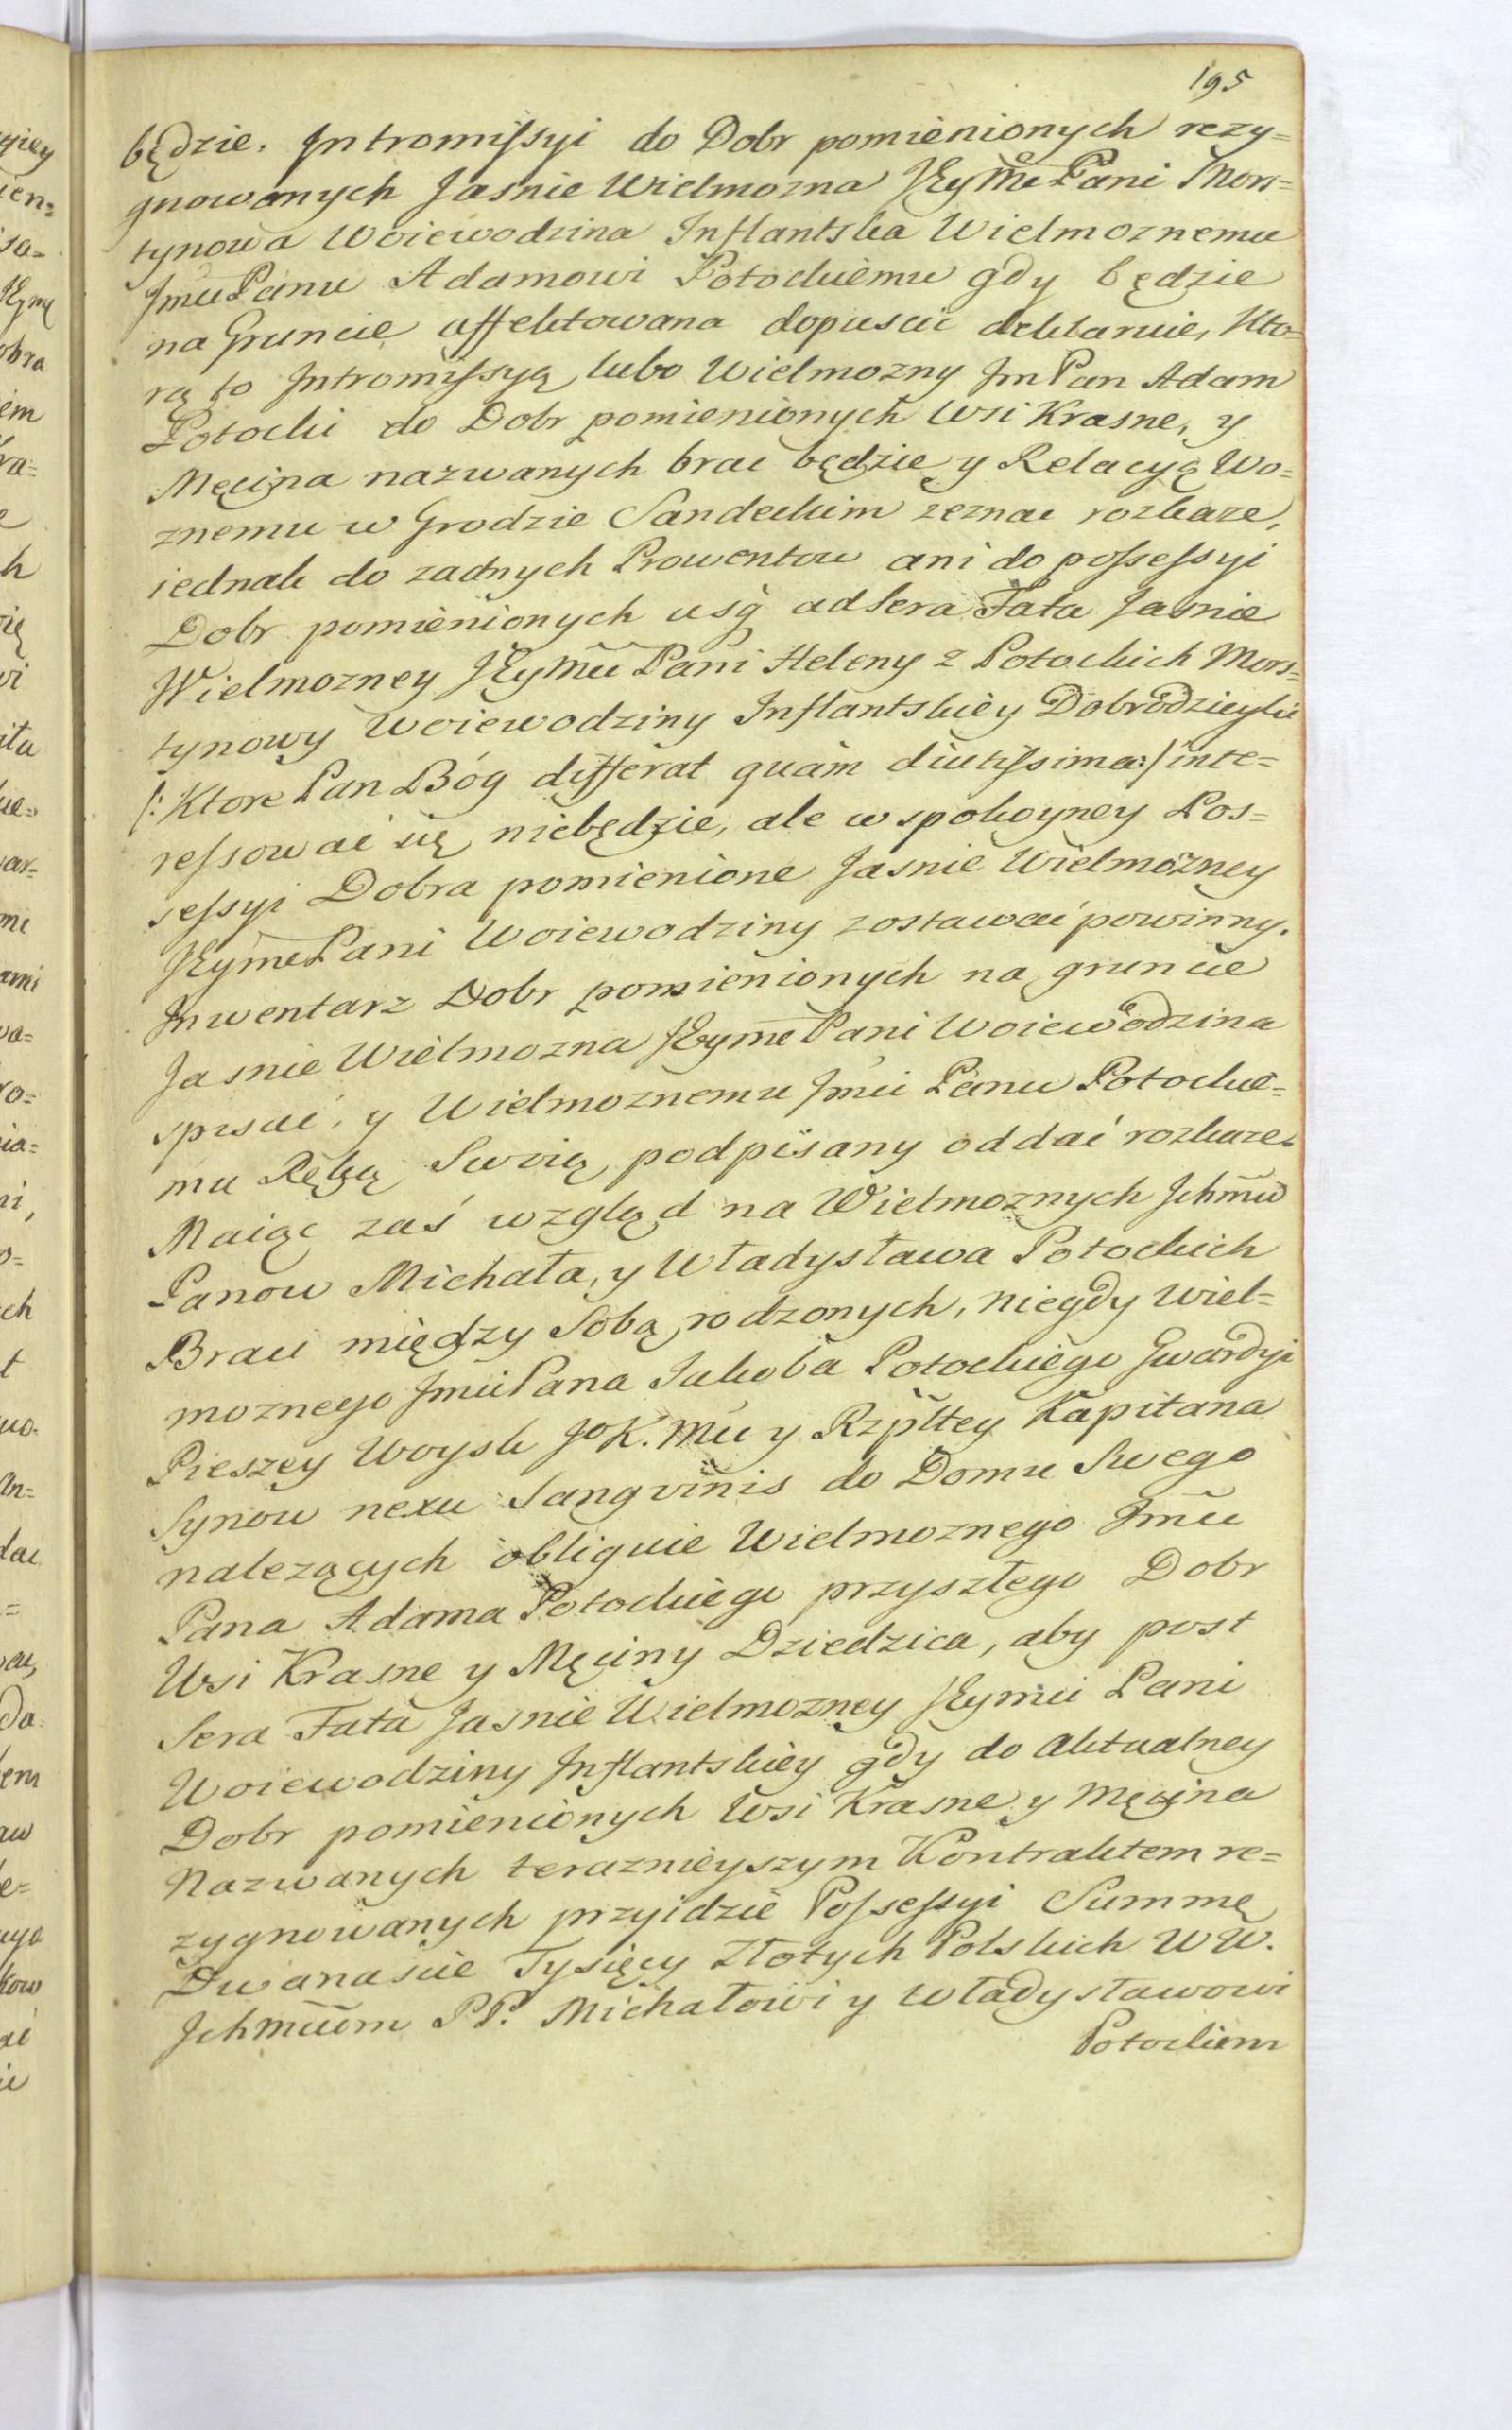 195
będzie. Intromissyi do Dobr pomienionych rezy=
gnowanych Jasnie Wielmozna JEymć Pani Mors=
tynowa Woiewodzina Inflantska Wielmoznemu
Jmu Panu Adamowi Potockiemu gdy będzie
na Gruncie affektowana dopuscic deklaruie, Kto=
rą to Intromissyą lubo Wielmozny Jm Pan Adam
Potocki do Dobr pomienionych Wsi Krasne, y
Męcina nazwanych brac będzie y Relacyą Wo=
znemu w Grodzie Sandeckim zeznac rozkaze,
iednak do zadnych Prowentow ani do possessyi
Dobr pomienionych usq̃ ad sera Fata Jasnie
Wielmozney JEymći Pani Heleny z Potockich Mors=
tynowy Woiewodziny Inflantskiey Dobrodzieyki
/: Ktore Pan Bóg differat quàm diutissima :/ inte=
ressowac się niebędzie, ale w spokoyney Pos=
sessyi Dobra pomienione Jasnie Wielmozney
JEymć Pani Woiewodziny zostawać powinny.
Inwentarz Dobr pomienionych na gruncie
Jasnie Wielmozna JEymć Pani Woiewodzina
spisać, y Wielmoznemu Jmći Panu Potockie=
mu Ręką Swoią podpisany oddać rozkaze.
Maiąc zaś wzgląd na Wielmoznych Jchmciów
Panow Michała, y Władysława Potockich
Braci między Sobą rodzonych, niegdy Wiel=
moznego Jmći Pana Jakoba Potockiego Gwardyi
Pieszey Woysk JoK. Mći y Rzpltey Kapitana
Synow nexu Sangvinis do Domu Swego
nalezących obliguie Wielmoznego Jmći
Pana Adama Potockiego przyszłego Dobr
Wsi Krasne y Męciny Dziedzica, aby post
Sera Fata Jasnie Wielmozney JEymci Pani
Woiewodziny Inflantskiey gdy do aktualney
Dobr pomienionych Wsi Krasne y Męcina
Nazwanych teraznieyszym Kontraktem re=
zygnowanych przyidzie Possessyi Summę
Dwanascie Tysięcy Złotych Polskich WW.
Jchmciom PP. Michałowi y Władysławowi
Potockiem